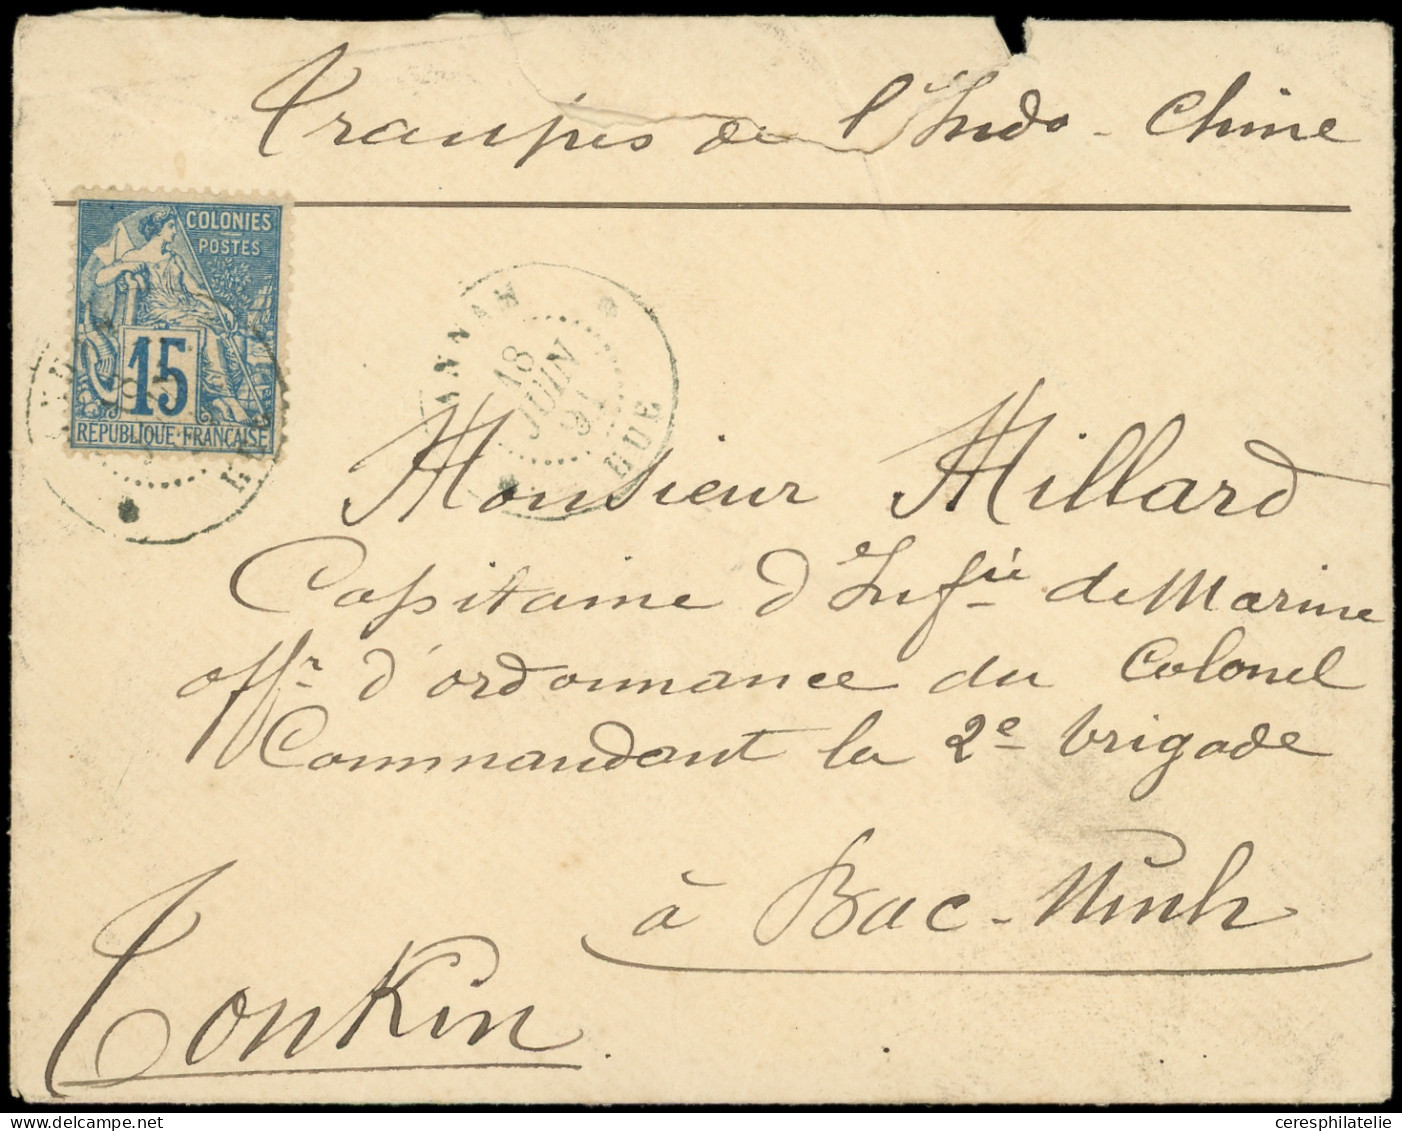 Troupes de l'Indo-Chine
COLONIES
POSTES
15
REPUBLIQUE·FRANCAISE
ANNAM
18
JUIN
91
HUE
Monsieur Millard
Capitaine d'Inf^ie de Marine
off^r d'ordonnance du Colonel
Commandant la 2^e brigade
à Bac-Ninh
Tonkin
ceresphilatelie